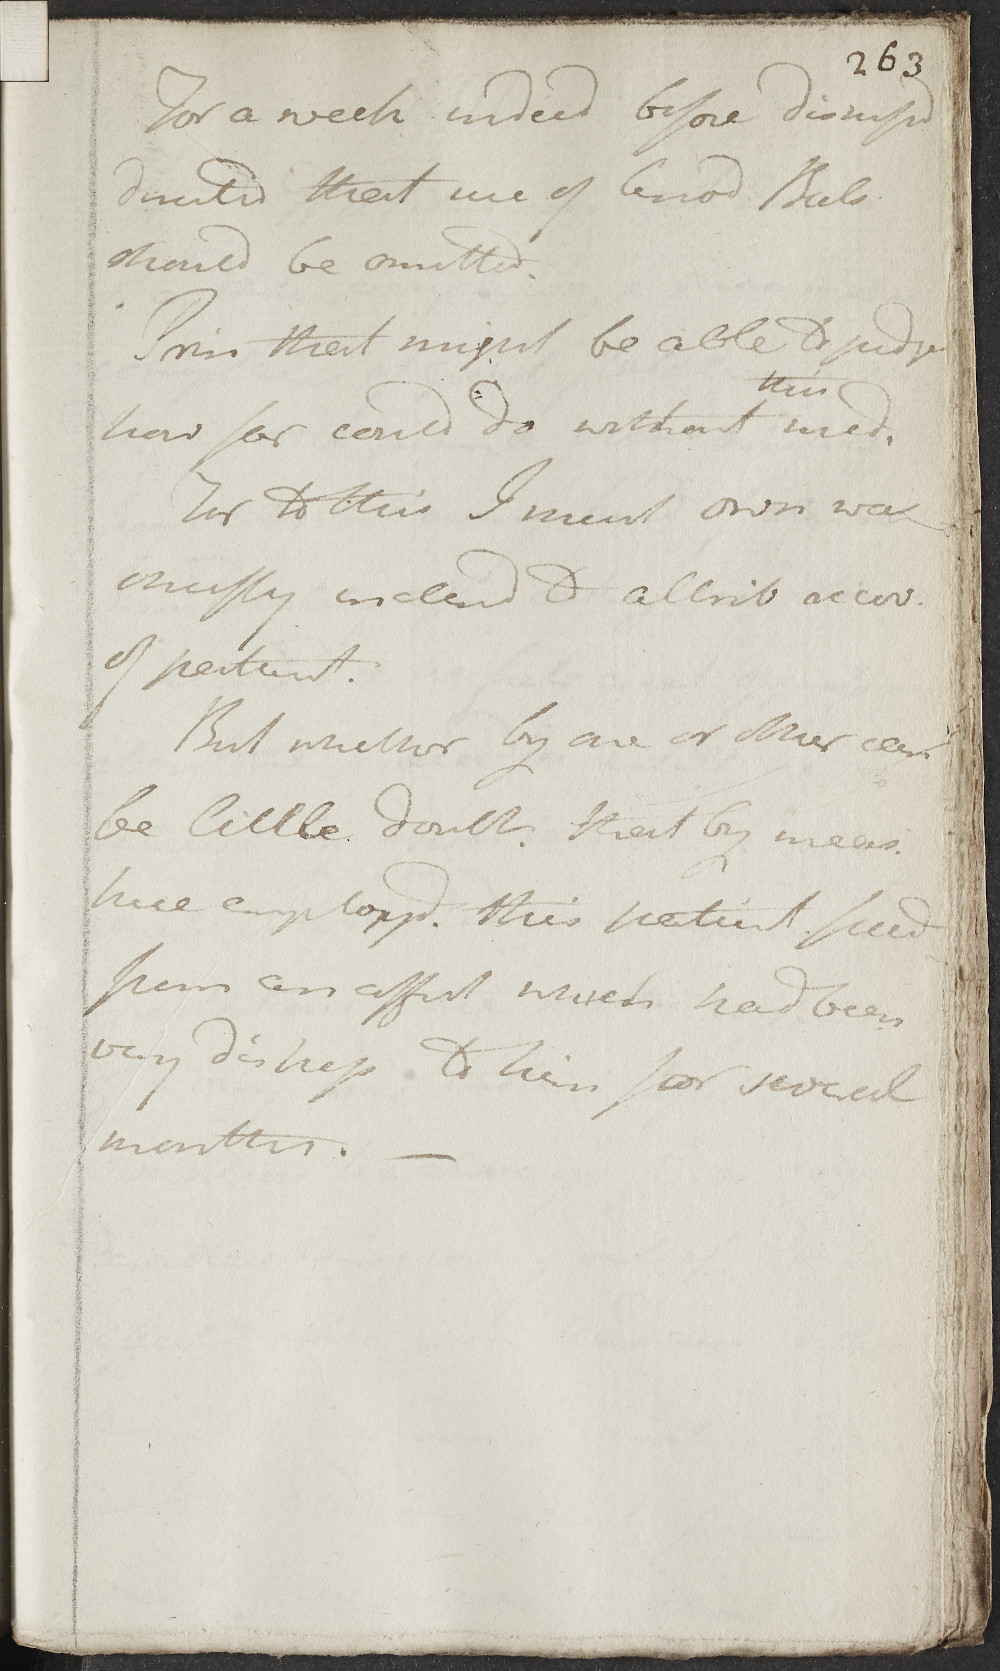 263
For a week indeed before dismiss'd
directed that use of Bals
should be omitted.
that might be able to judge
this
how far could do without med.
For to this I must own was
chiefly inclind to attrib recov.
of patient.
But whether by one or other can
be little doubt. that by meas.
here employd. this patient freed
from an affect which had been
very distress to him for several
months. —